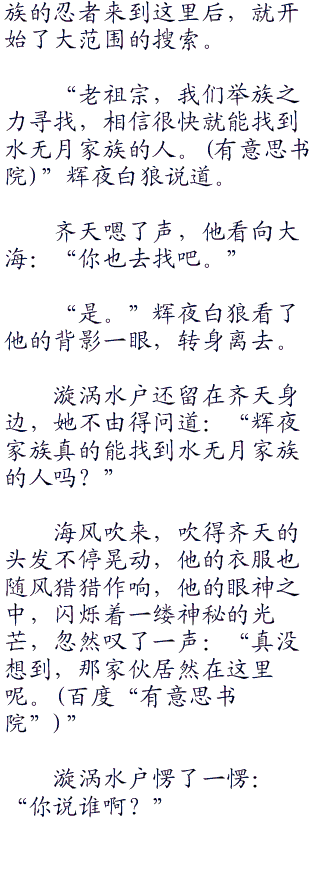 族的忍者来到这里后，就开
始了大范围的搜索。
“老祖宗，我们举族之
力寻找，相信很快就能找到
水无月家族的人。(有意思书
院)”辉夜白狼说道。
齐天嗯了声，他看向大
海：“你也去找吧。”
“是。”辉夜白狼看了
他的背影一眼，转身离去。
漩涡水户还留在齐天身
边，她不由得问道：“辉夜
家族真的能找到水无月家族
的人吗？”
海风吹来，吹得齐天的
头发不停晃动，他的衣服也
随风猎猎作响，他的眼神之
中，闪烁着一缕神秘的光
芒，忽然叹了一声：“真没
想到，那家伙居然在这里
呢。(百度“有意思书
院”)”
漩涡水户愣了一愣：
“你说谁啊？”